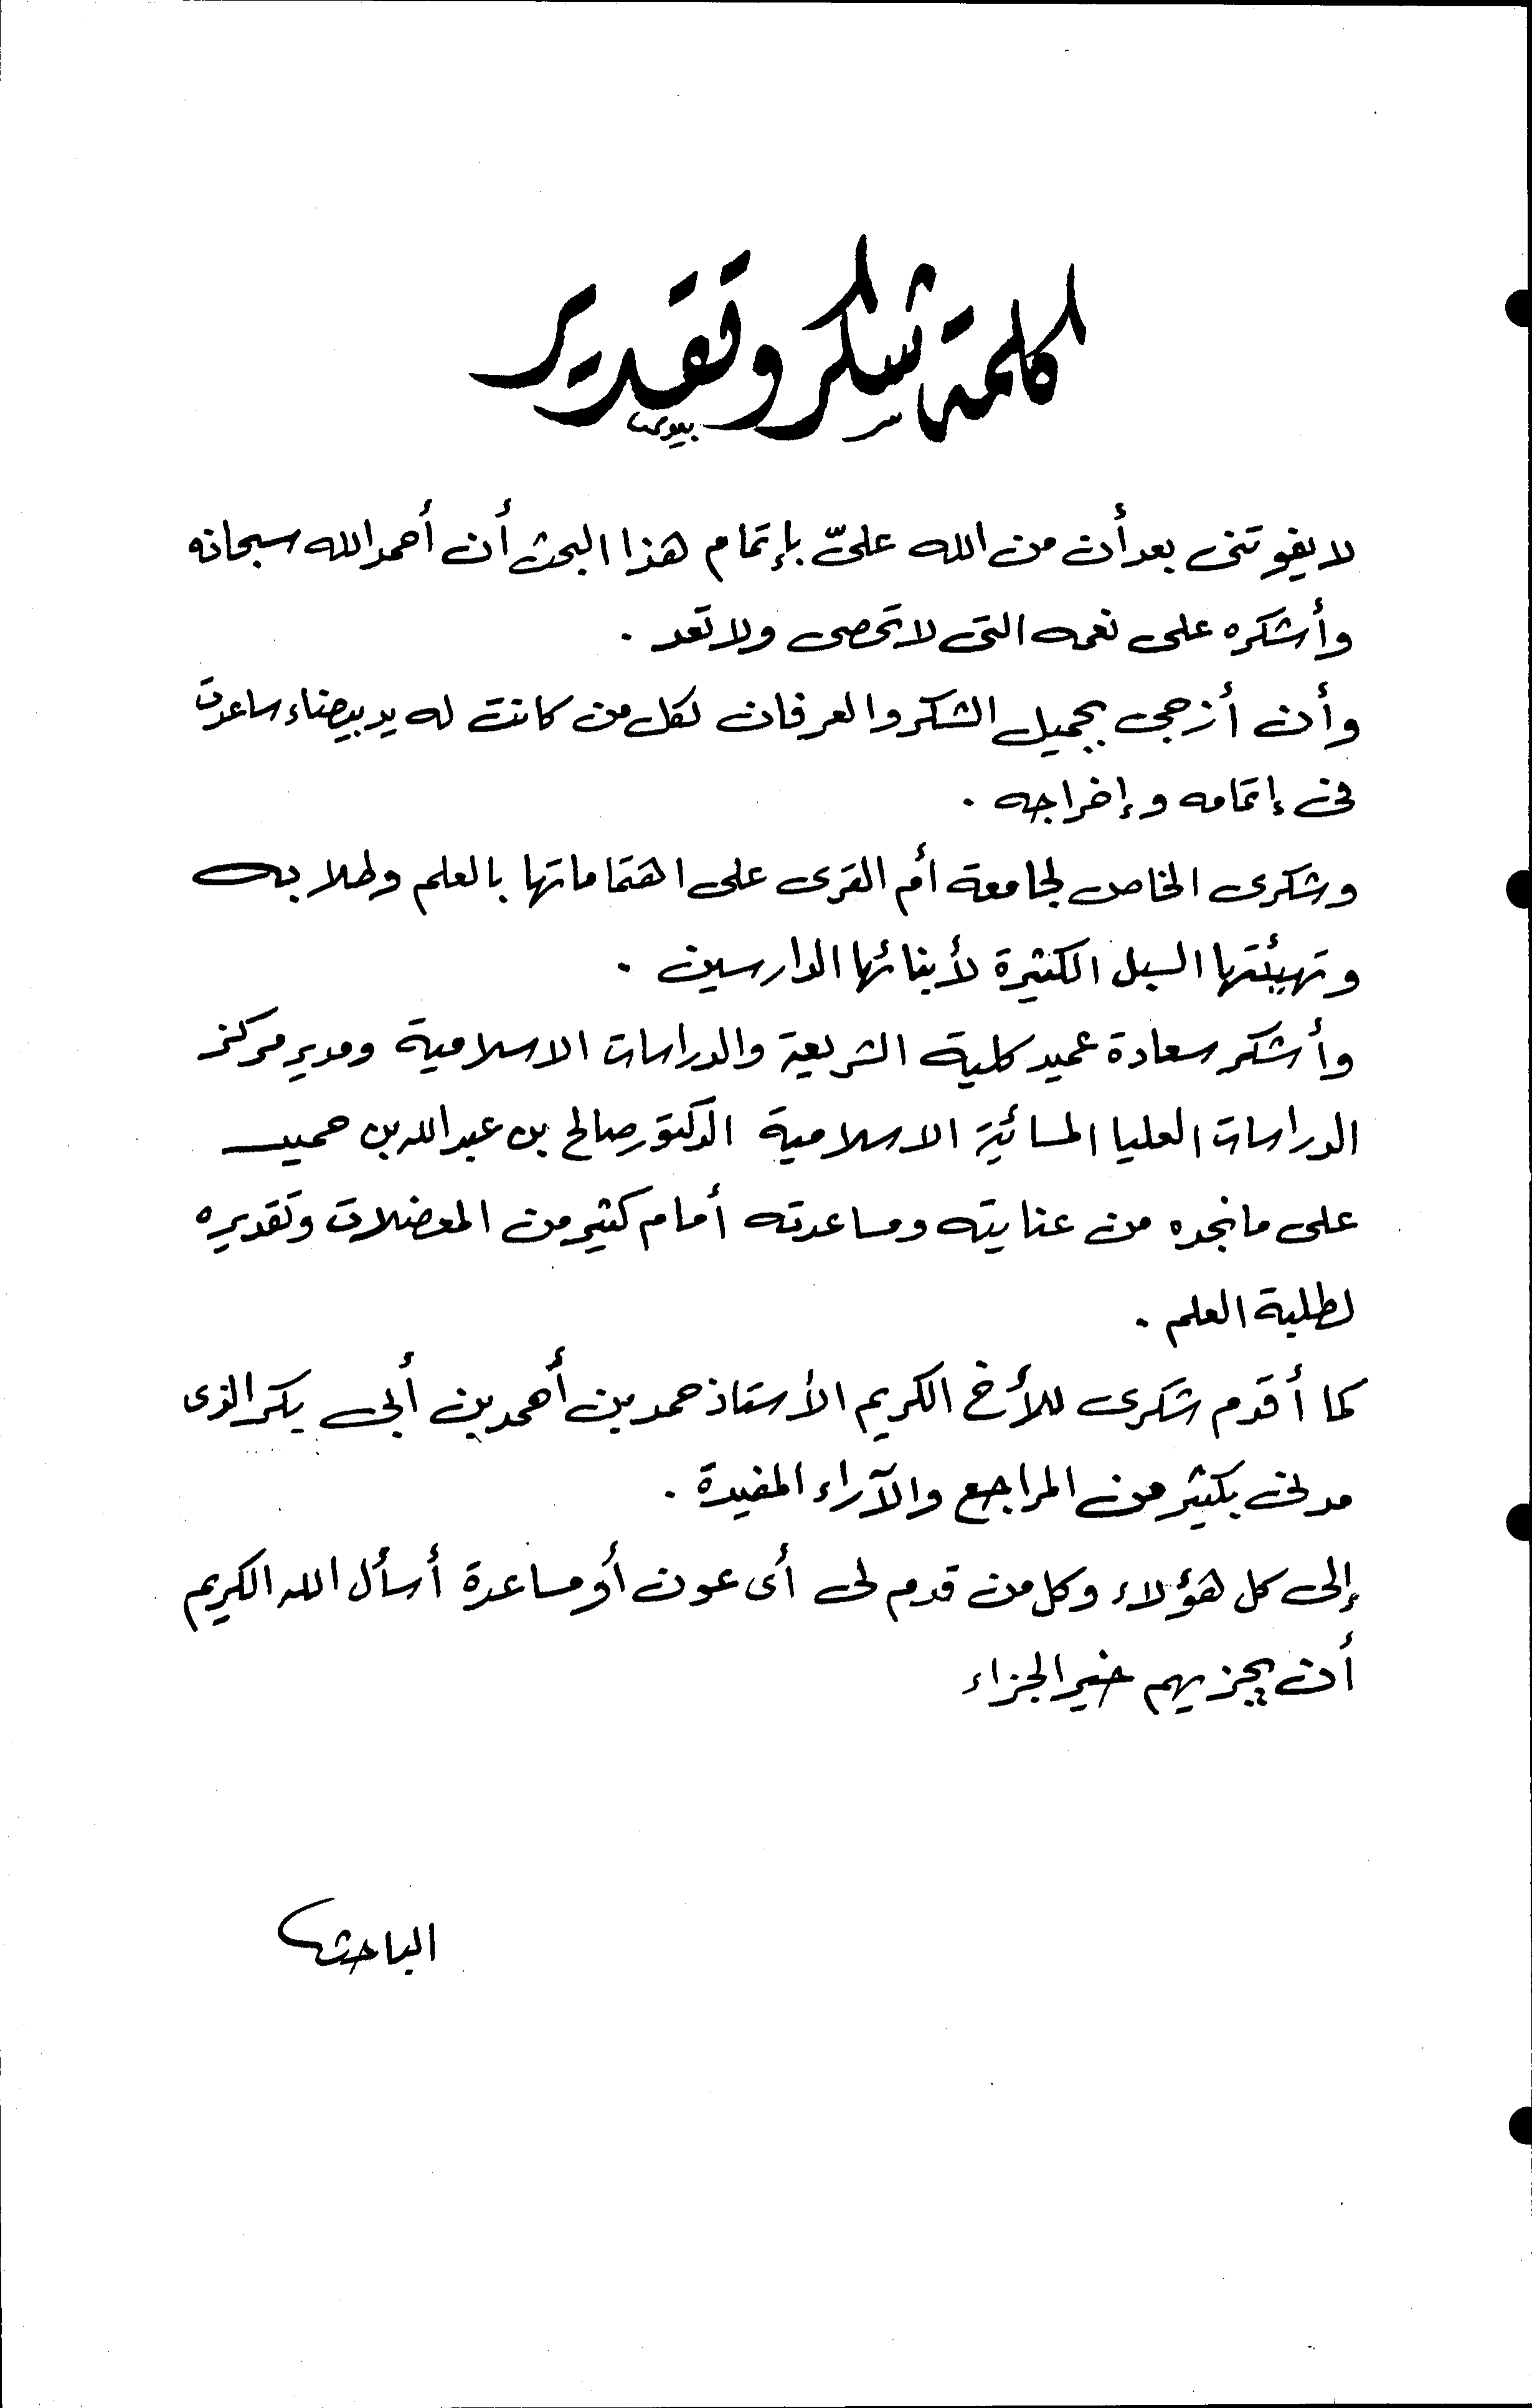 كلمة شكر وتقدير
بيومى
لا يفوتنى بعد أن من الله علىّ بإتمام هذا البحث أن أحمد الله سبحانه
وأشكره على نعمه التى لا تحصى ولا تعد .
وأن أزجى بجميل الشكر والعرفان لكل من كانت له يد بيضاء ساعدت
فى إتمامه وإخراجه .
وشكرى الخاص لجامعة أم القرى على اهتماماتها بالعلم وطلابه
وتهيئتها السبل الكثيرة لأبنائها الدارسين .
وأشكر سعادة عميد كلية الشريعة والدراسات الاسلامية ومدير مركز
الدراسات العليا المسائية الاسلامية الدكتور صالح بن عبد الله بن حميد
على ما نجده من عنايته ومساعدته أمام كثير من المعضلات وتقديره
لطلبة العلم .
كما أقدم شكرى للأخ الكريم الأستاذ حمد بن أحمد بن أبى بكر الذى
مدنى بكثير من المراجع والآراء المفيدة .
إلى كل هؤلاء وكل من قدم لى أى عون أو مساعدة أسأل الله الكريم
أن يجزيهم خير الجزاء
الباحث